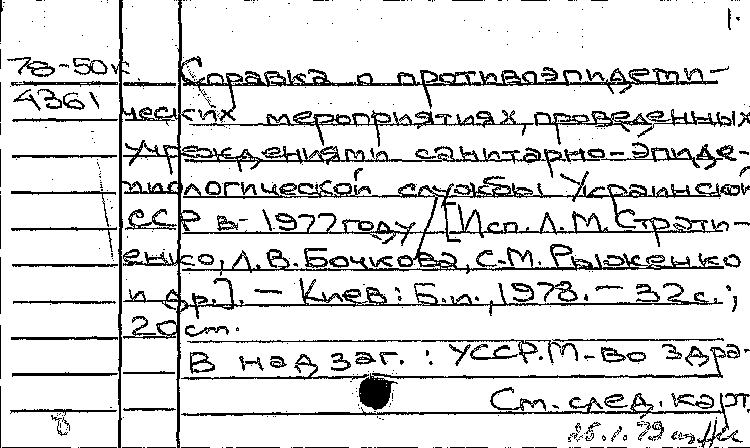 1.
78-50к Справка о противоэпидеми-
4361 ческих мероприятиях, проведенных
учреждениями санитарно-эпиде-
миологической службы Украинской
ССР в 1977 году / [Исп. Л.М. Страти-
енко, Л.В. Бочкова, С.М. Рыженко
и др.]. - Киев: Б.и., 1978. - 32 с.;
20 см.
В надзаг.: УССР. М-во здра-
См. след. карт.
25.1.79
8